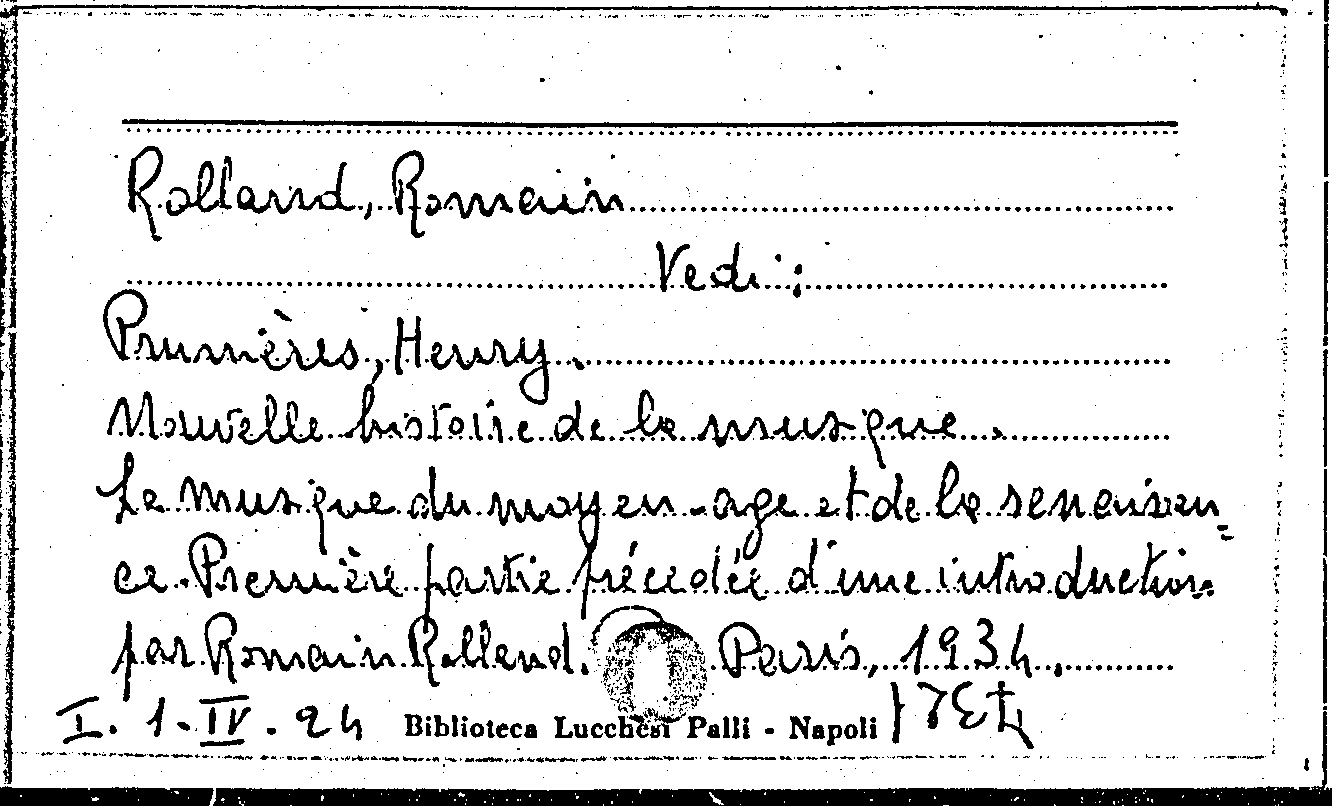 Rolland, Romain
Vedi:
Prunières, Henry.
Nouvelle histoire de la musique.
La musique du moyen-age et de la renaissan=
ce. Première partie précédée d'une introduction
par Romain Rolland. Paris, 1934.
I. 1. IV. 24 Biblioteca Lucchesi Palli - Napoli